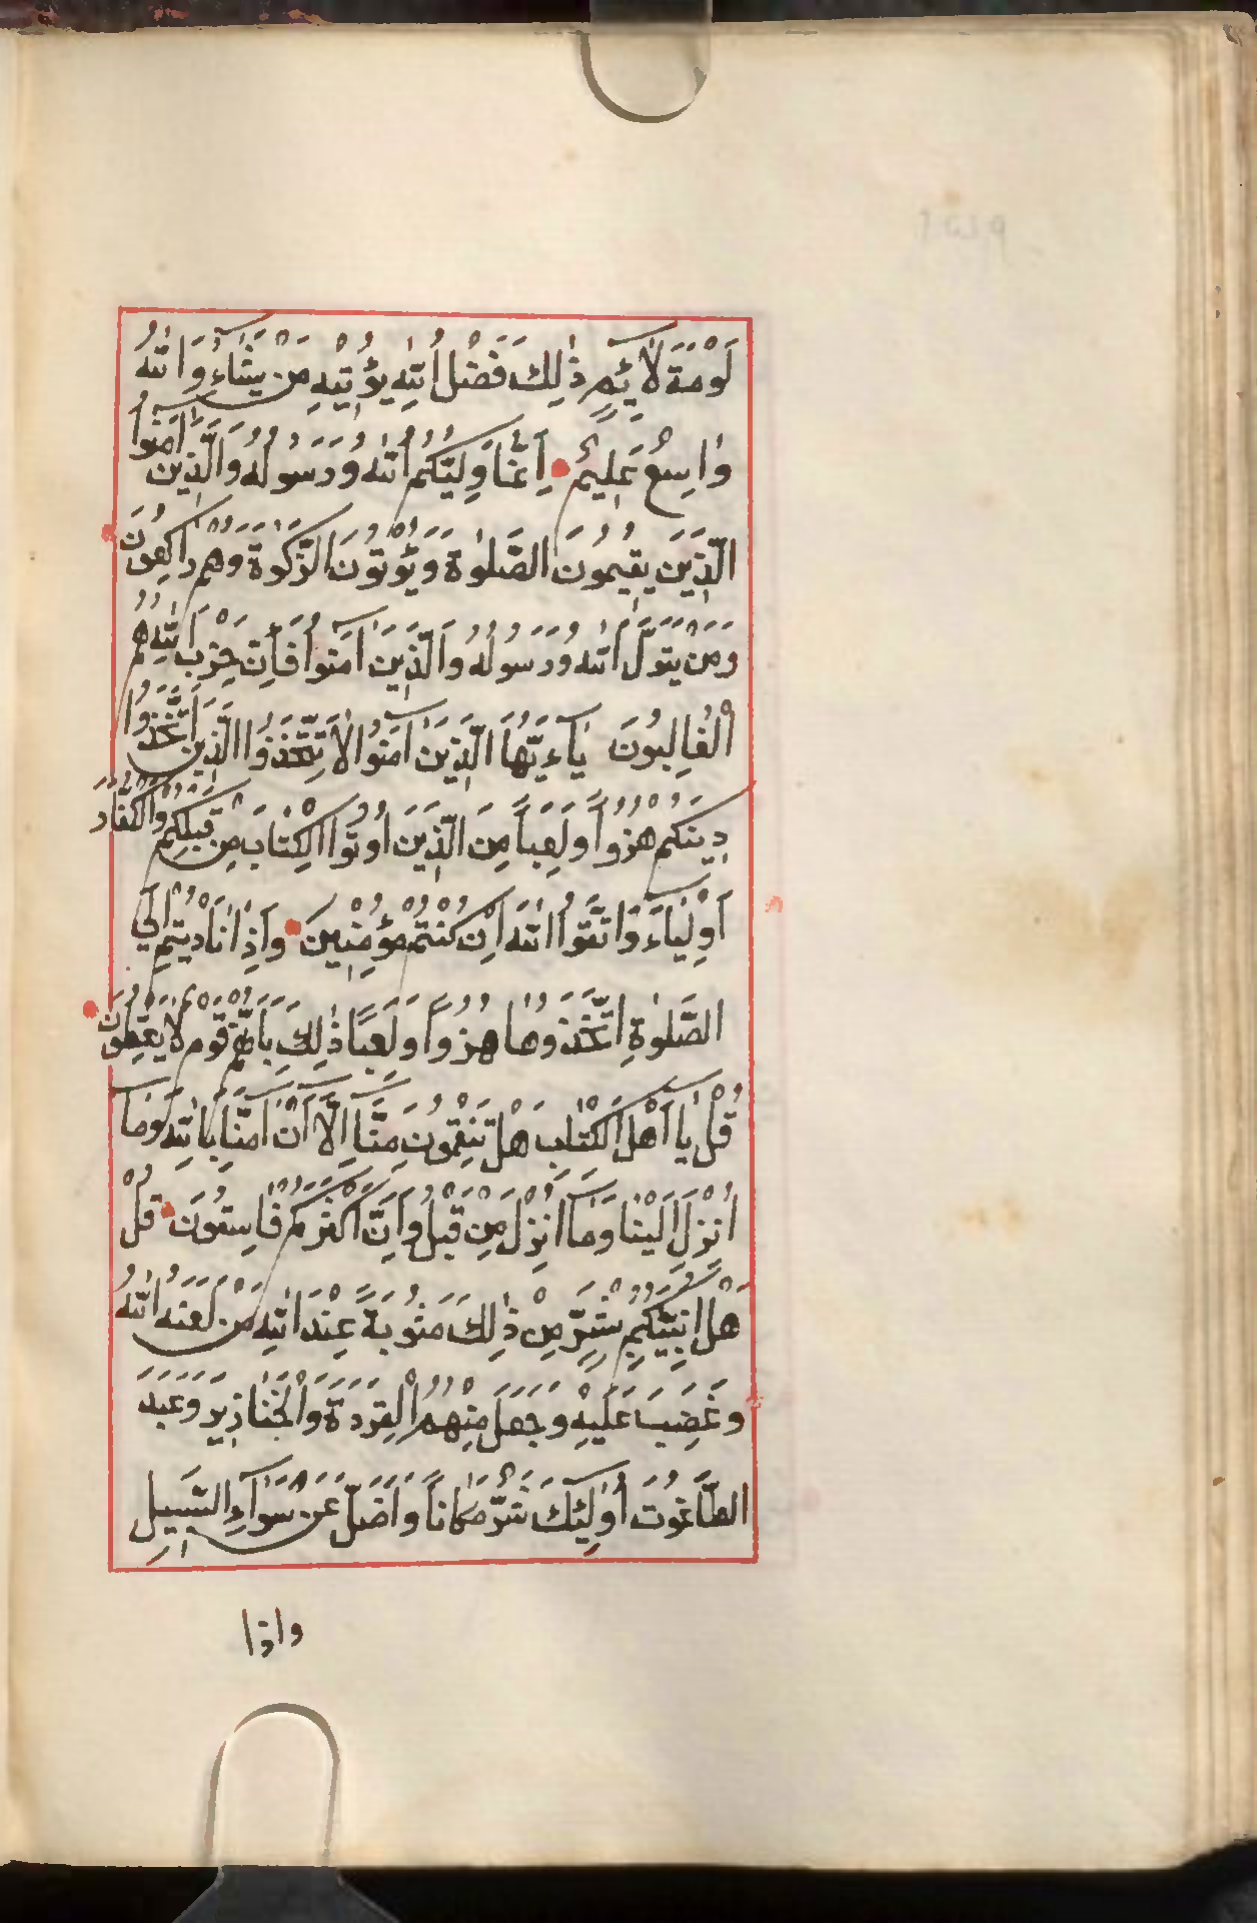 لَوْمَةَ لَآئِمٍ ذٰلِكَ فَضْلُ اللّٰهِ يُؤْتِيهِ مَنْ يَشَآءُ وَاللّٰهُ
وَاسِعٌ عَلِيمٌ اِنَّمَا وَلِيُّكُمُ اللّٰهُ وَرَسُولُهُ وَالَّذِينَ اٰمَنُوا
الَّذِينَ يُقِيمُونَ الصَّلٰوةَ وَيُؤْتُونَ الزَّكٰوةَ وَهُمْ رَاكِعُونَ
وَمَنْ يَتَوَلَّ اللّٰهَ وَرَسُولَهُ وَالَّذِينَ اٰمَنُوا فَاِنَّ حِزْبَ اللّٰهِ هُمُ
الْغَالِبُونَ يَآءَيُّهَا الَّذِينَ اٰمَنُوا لَا تَتَّخِذُوا الَّذِينَ اتَّخَذُوا
دِينَكُمْ هُزُوًا وَلَعِبًا مِنَ الَّذِينَ اُوتُوا الْكِتَابَ مِنْ قَبْلِكُمْ وَالْكُفَّارَ
اَوْلِيَآءَ وَاتَّقُوا اللّٰهَ اِنْ كُنْتُمْ مُؤْمِنِينَ وَاِذَا نَادَيْتُمْ اِلَى
الصَّلٰوةِ اتَّخَذُوهَا هُزُوًا وَلَعِبًا ذٰلِكَ بِاَنَّهُمْ قَوْمٌ لَا يَعْقِلُونَ
قُلْ يَا اَهْلَ الْكِتَابِ هَلْ تَنْقِمُونَ مِنَّا اِلَّا اَنْ اٰمَنَّا بِاللّٰهِ وَمَا
اُنْزِلَ اِلَيْنَا وَمَا اُنْزِلَ مِنْ قَبْلُ وَاَنَّ اَكْثَرَكُمْ فَاسِقُونَ قُلْ
هَلْ اُنَبِّئُكُمْ بِشَرٍّ مِنْ ذٰلِكَ مَثُوبَةً عِنْدَ اللّٰهِ مَنْ لَعَنَهُ اللّٰهُ
وَغَضِبَ عَلَيْهِ وَجَعَلَ مِنْهُمُ الْقِرَدَةَ وَالْخَنَازِيرَ وَعَبَدَ
الطَّاغُوتَ اُولٰئِكَ شَرٌّ مَكَانًا وَاَضَلُّ عَنْ سَوَآءِ السَّبِيلِ
واذا